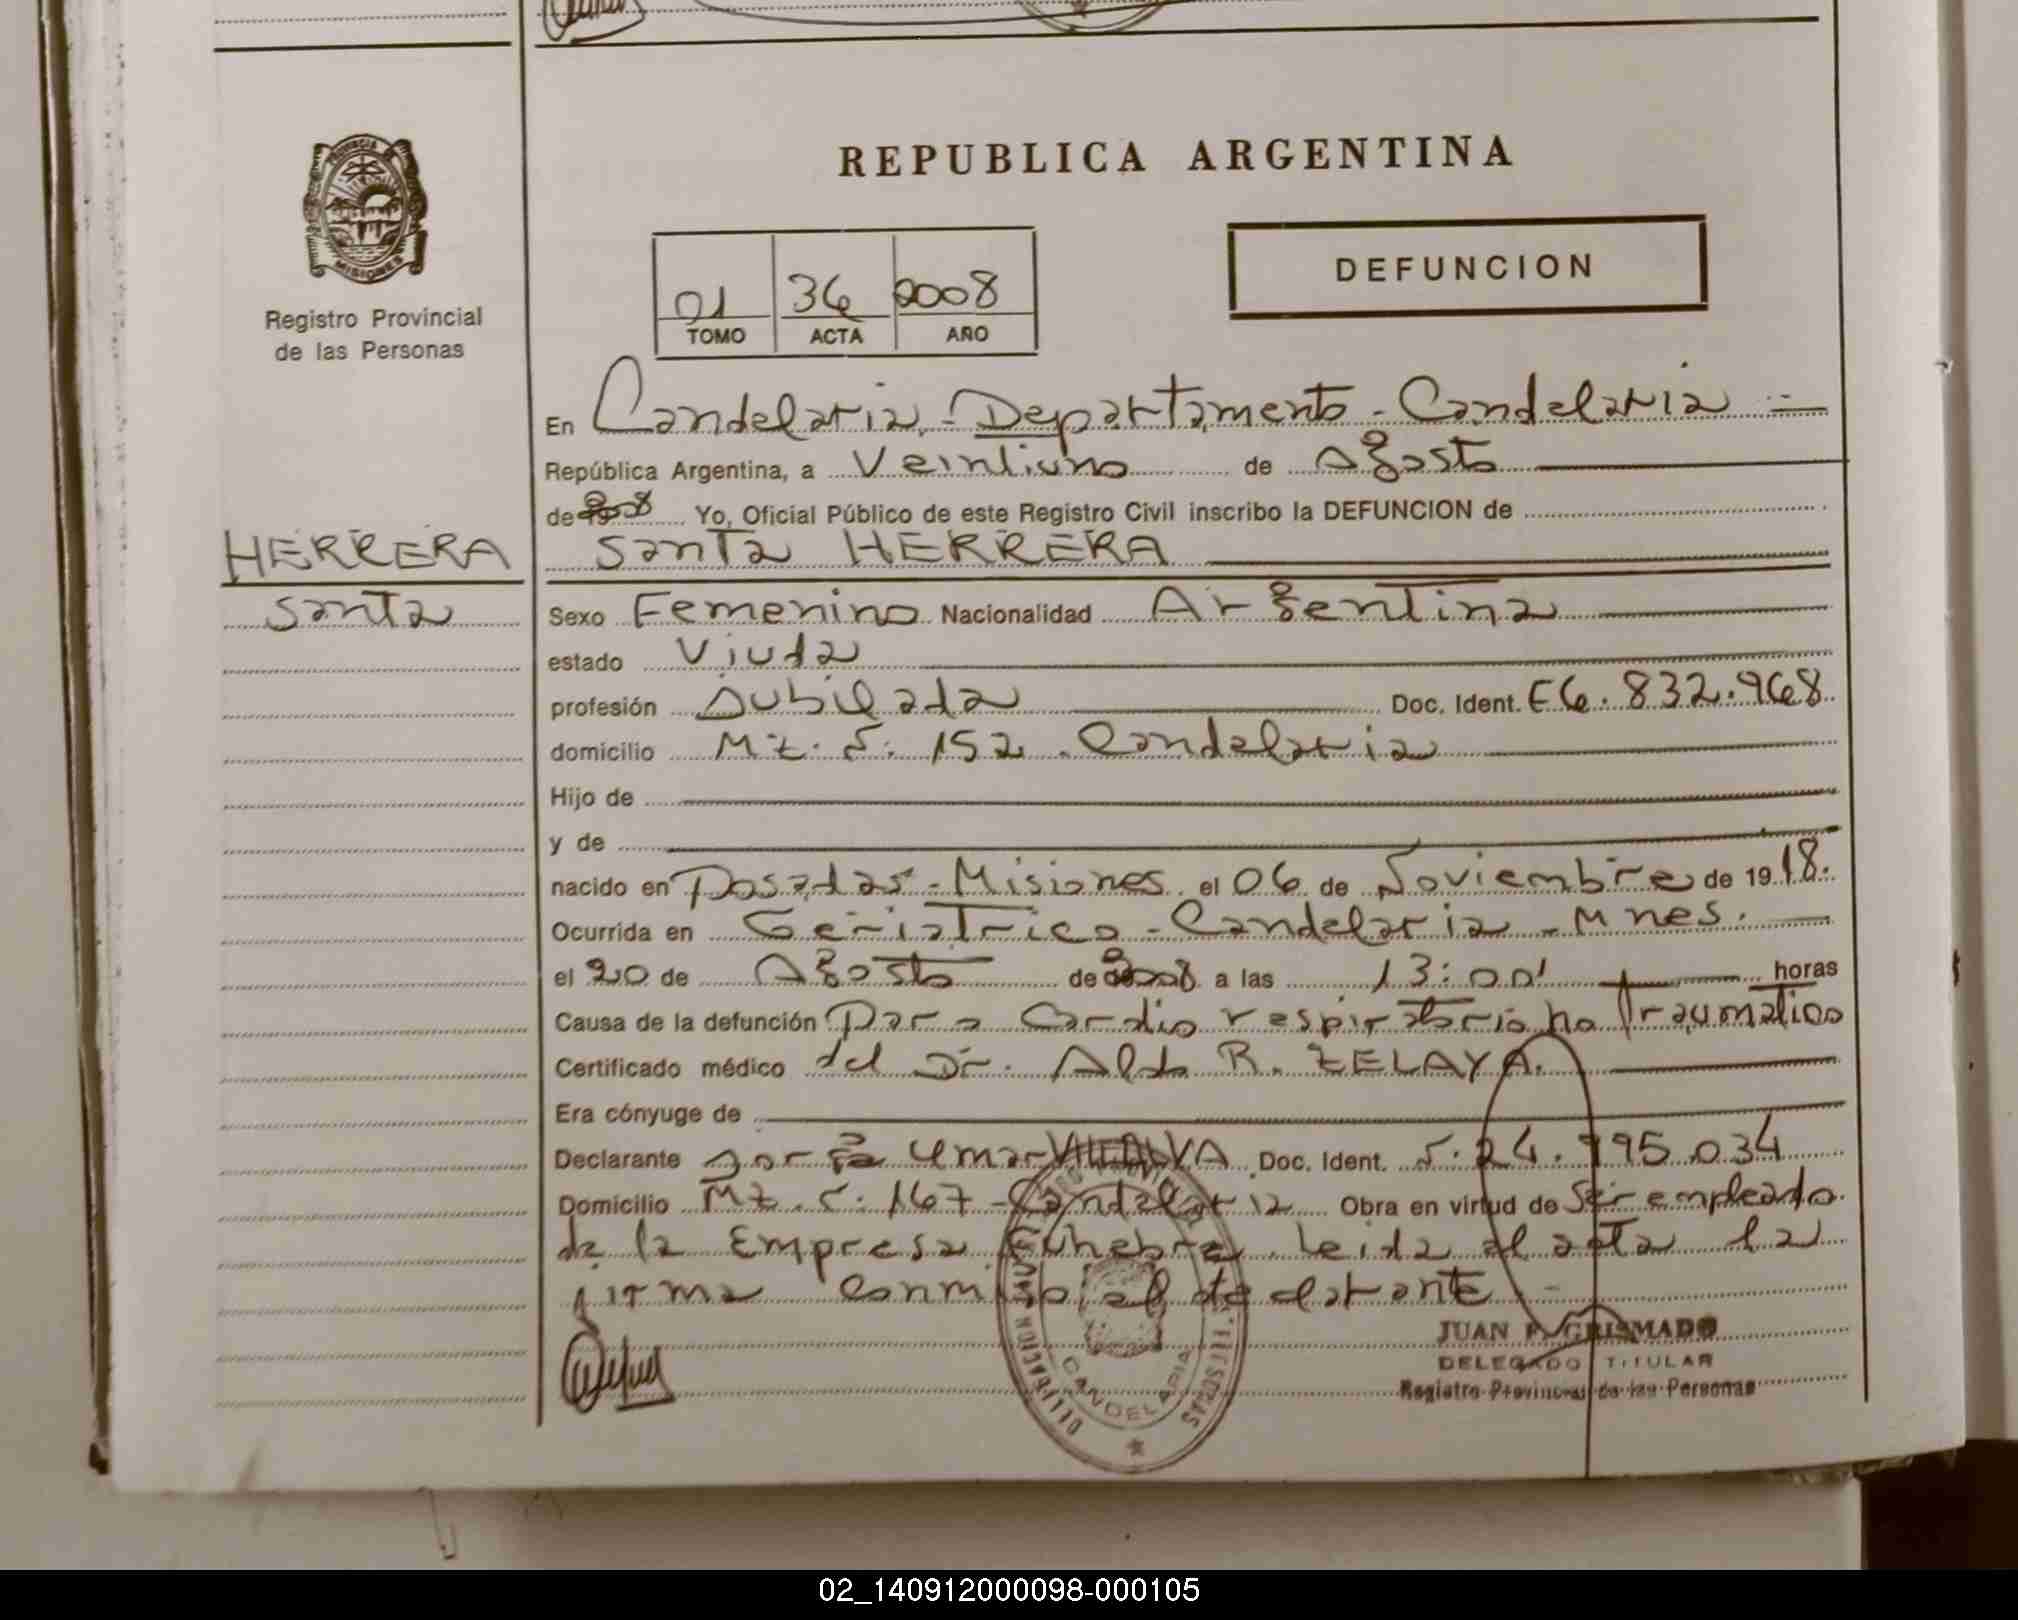 REPUBLICA ARGENTINA
PROVINCIA DE
MISIONES
Registro Provincial
de las Personas
01 36 2008
TOMO ACTA AÑO
DEFUNCION
En Candelaria - Departamento - Candelaria -
República Argentina, a Veintiuno de Agosto
de 2008 Yo, Oficial Público de este Registro Civil inscribo la DEFUNCION de
HERRERA
Santa HERRERA
Santa
Sexo Femenino Nacionalidad Argentina
estado Viuda
profesión Jubilada Doc. Ident. F6.832.968
domicilio Mz. S. 152 - Candelaria
Hijo de
y de
nacido en Posadas - Misiones el 06 de Noviembre de 1918.
Ocurrida en Geriatrico - Candelaria - Mnes.
el 20 de Agosto de 2008 a las 13:00' horas
Causa de la defunción Paro Cardio respiratorio no traumatico
Certificado médico del Dr. Aldo R. ZELAYA.
Era cónyuge de
Declarante Jorge Omar Doc. Ident. 24.995.034
Domicilio Mz. S. 167 - Candelaria Obra en virtud de Ser empleado
de la Empresa Funebre. Leida el acta la
firma conmigo, el declarante -
JUAN F. GRISMADO
DELEGADO TITULAR
Registro Provincial de las Personas
CANDELARIA
02_140912000098-000105